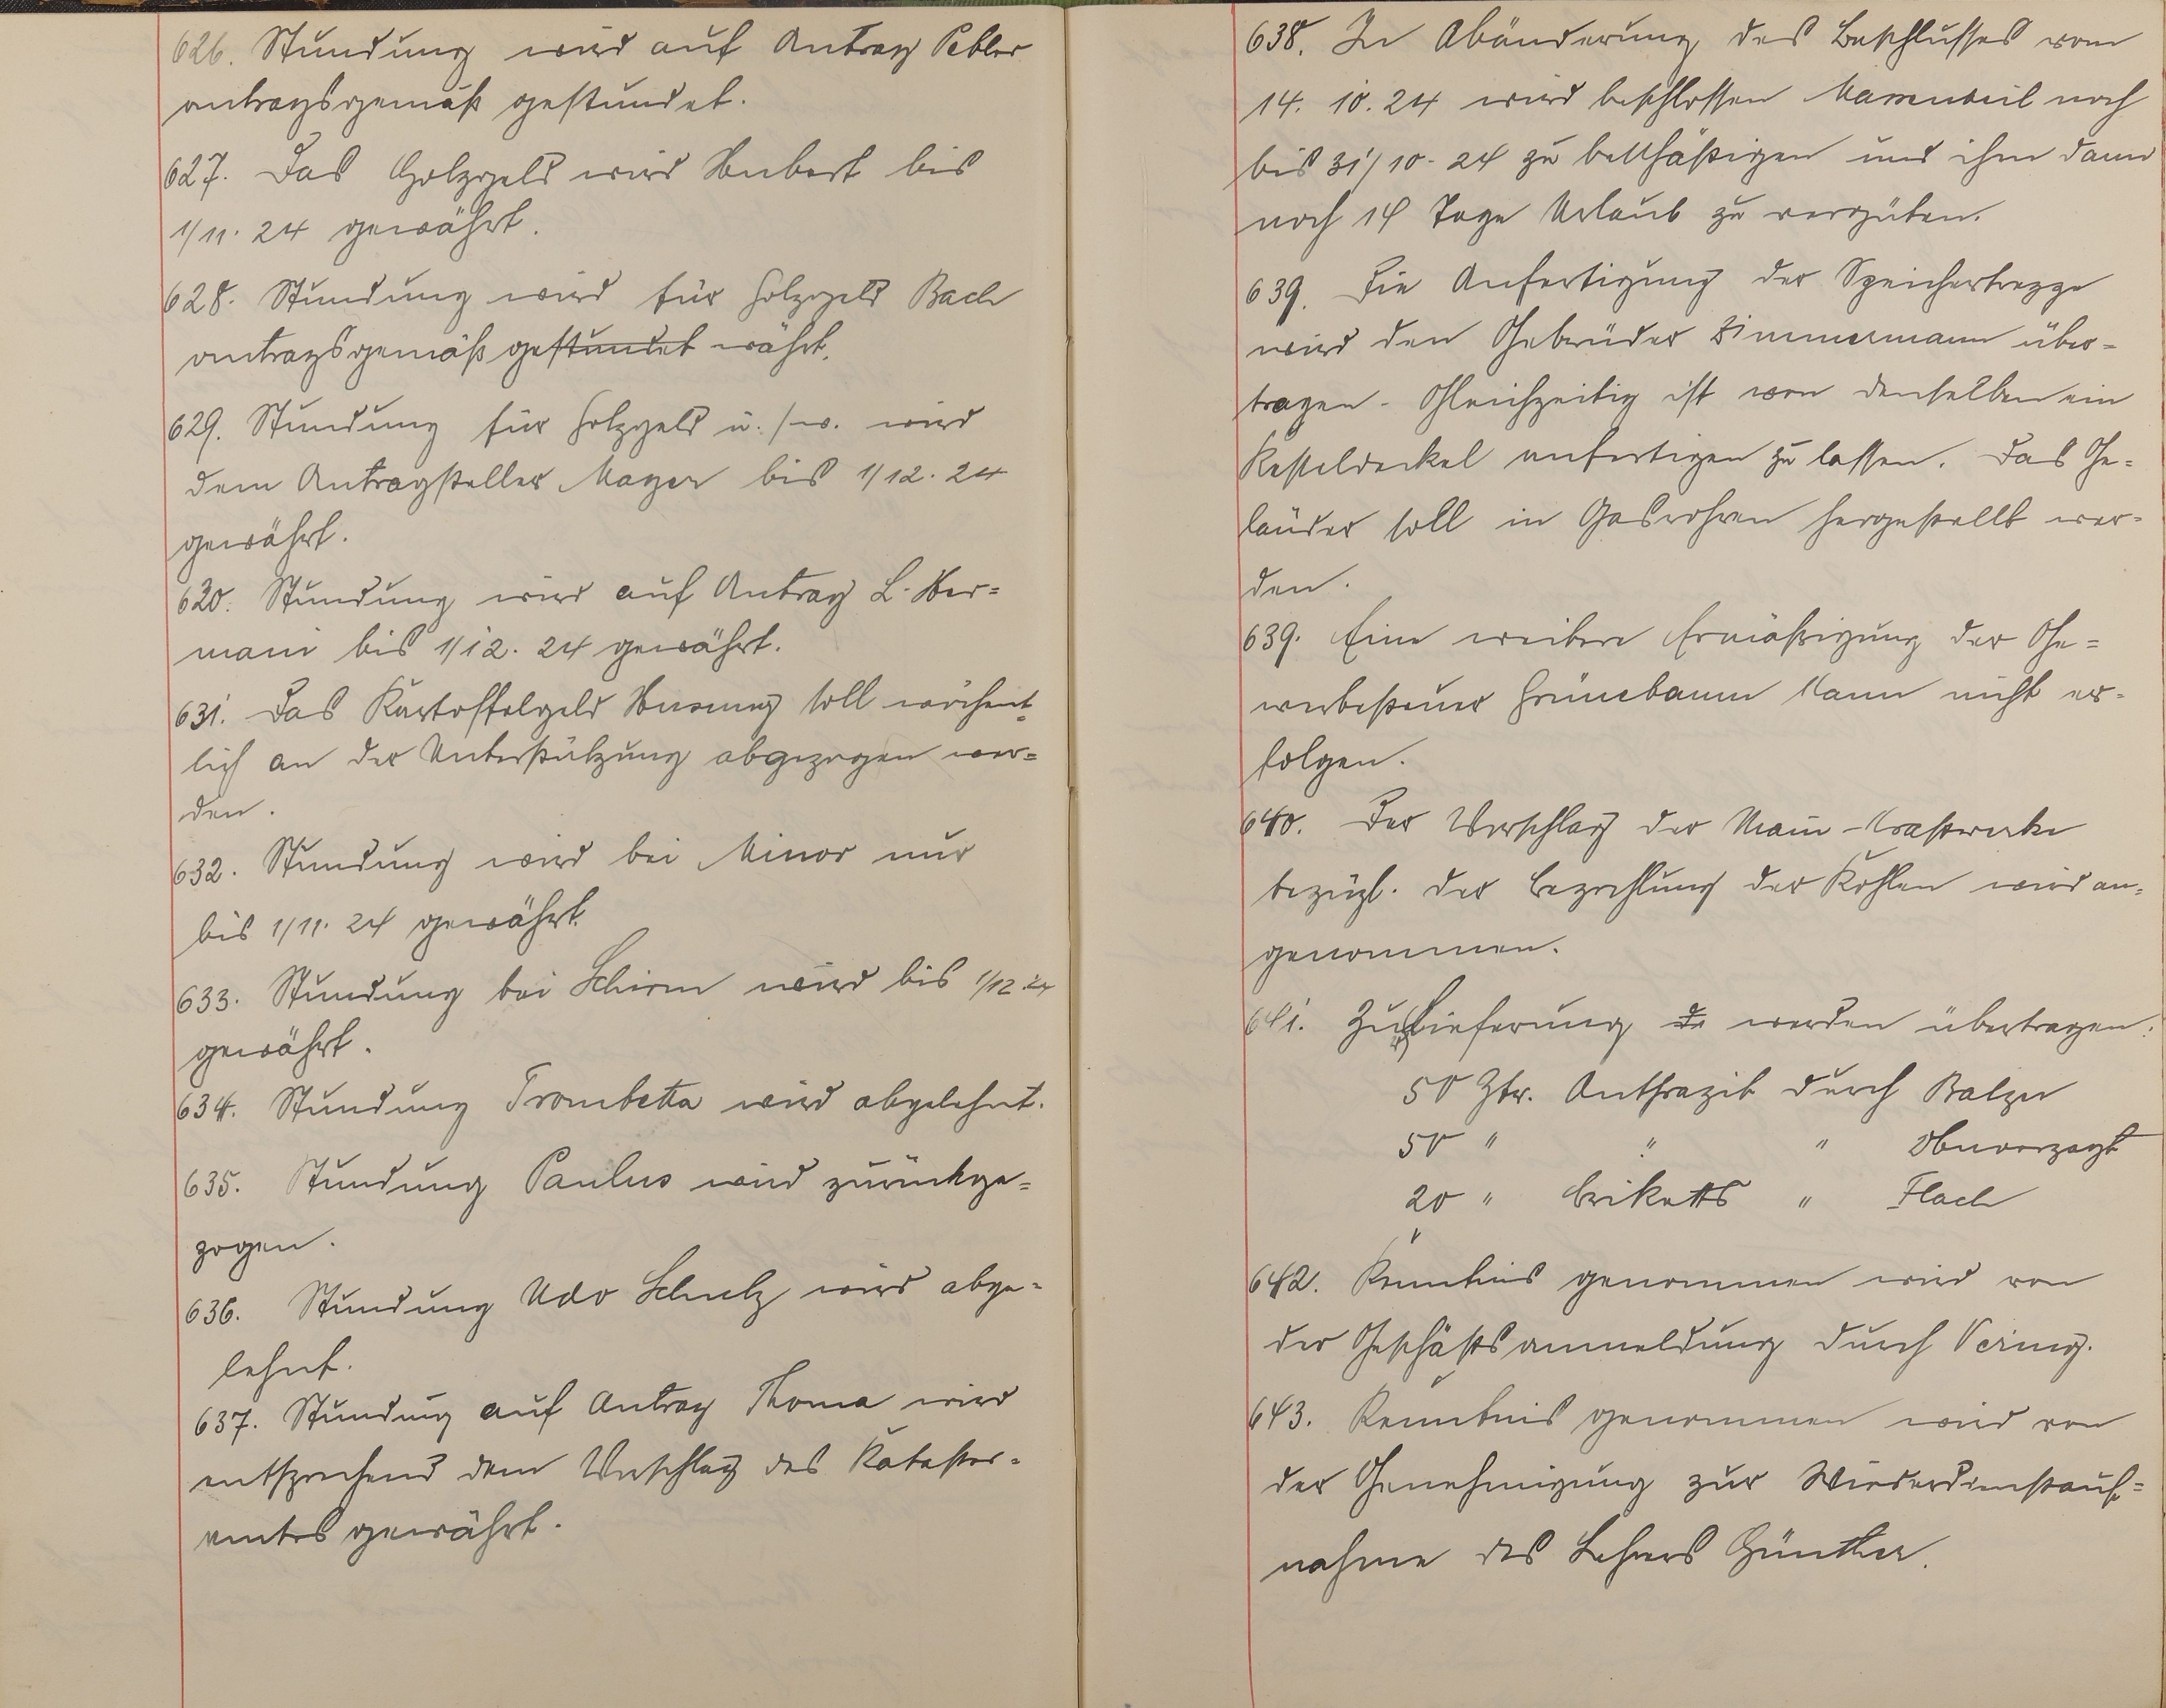 626. Stundung wird auf Antrag Pebler
antragsgemäß gestundet.
627. Das Holzgeld wird Hubert bis
1/11. 24 gewährt.
628. Stundung wird für Holzgeld Bach
antragsgemäß gestundet währt.
629. Stundung für Holzgeld u. s. w. wird
dem Antragsteller Mayer bis 1/12. 24
gewährt.
620. Stundung wird auf Antrag L. Her=
mani bis 1/12. 24 gewährt.
631. Das Kartoffelgeld soll wöchent=
lich an der Unterstützung abgezogen wer=
den.
632. Stundung wird bei Minor nur
bis 1/11. 24 gewährt.
633. Stundung bei Schirm wird bis 1/12. 24
gewährt.
634. Stundung Trombetta wird abgelehnt.
635. Stundung Paulus wird zurückge=
zogen.
636. Stundung Udo Schulz wird abge=
lehnt.
637. Stundung auf Antrag Thoma wird
entsprechend dem Vorschlag des Kataster=
amtes gewährt.
638. In Abänderung des Beschlusses vom
14. 10. 24 wird beschlossen noch
bis 31/10. 24 zu beschäftigen und ihm dann
noch 14 Tage Urlaub zu vergüten.
639. Die Anfertigung der Speichertreppe
wird den Gebrüder Zimmermann über=
tragen. Gleichzeitig ist von denselben ein
Kesseldeckel anfertigen zu lassen. Das Ge=
länder soll in Gasrohren hergestellt wer=
den.
639. Eine weitere Ermäßigung der Ge=
werbesteuer Grünebaum kann nicht er=
folgen.
640. Der Vorschlag der Main-Kraftwerke
bezügl. der Bezahlung der Kohlen wird an=
genommen.
641. Zur Lieferung de werden übertragen:
50 Ztr. Anthrazit durch Balzer
50 " " " Ohnverzagt
20 " Briketts " Flach
642. Kenntnis genommen wird von
der Geschäftsanmeldung durch Vering.
643. Kenntnis genommen wird von
der Genehmigung zur Wiederdienstauf=
nahme des Lehrers Günther.